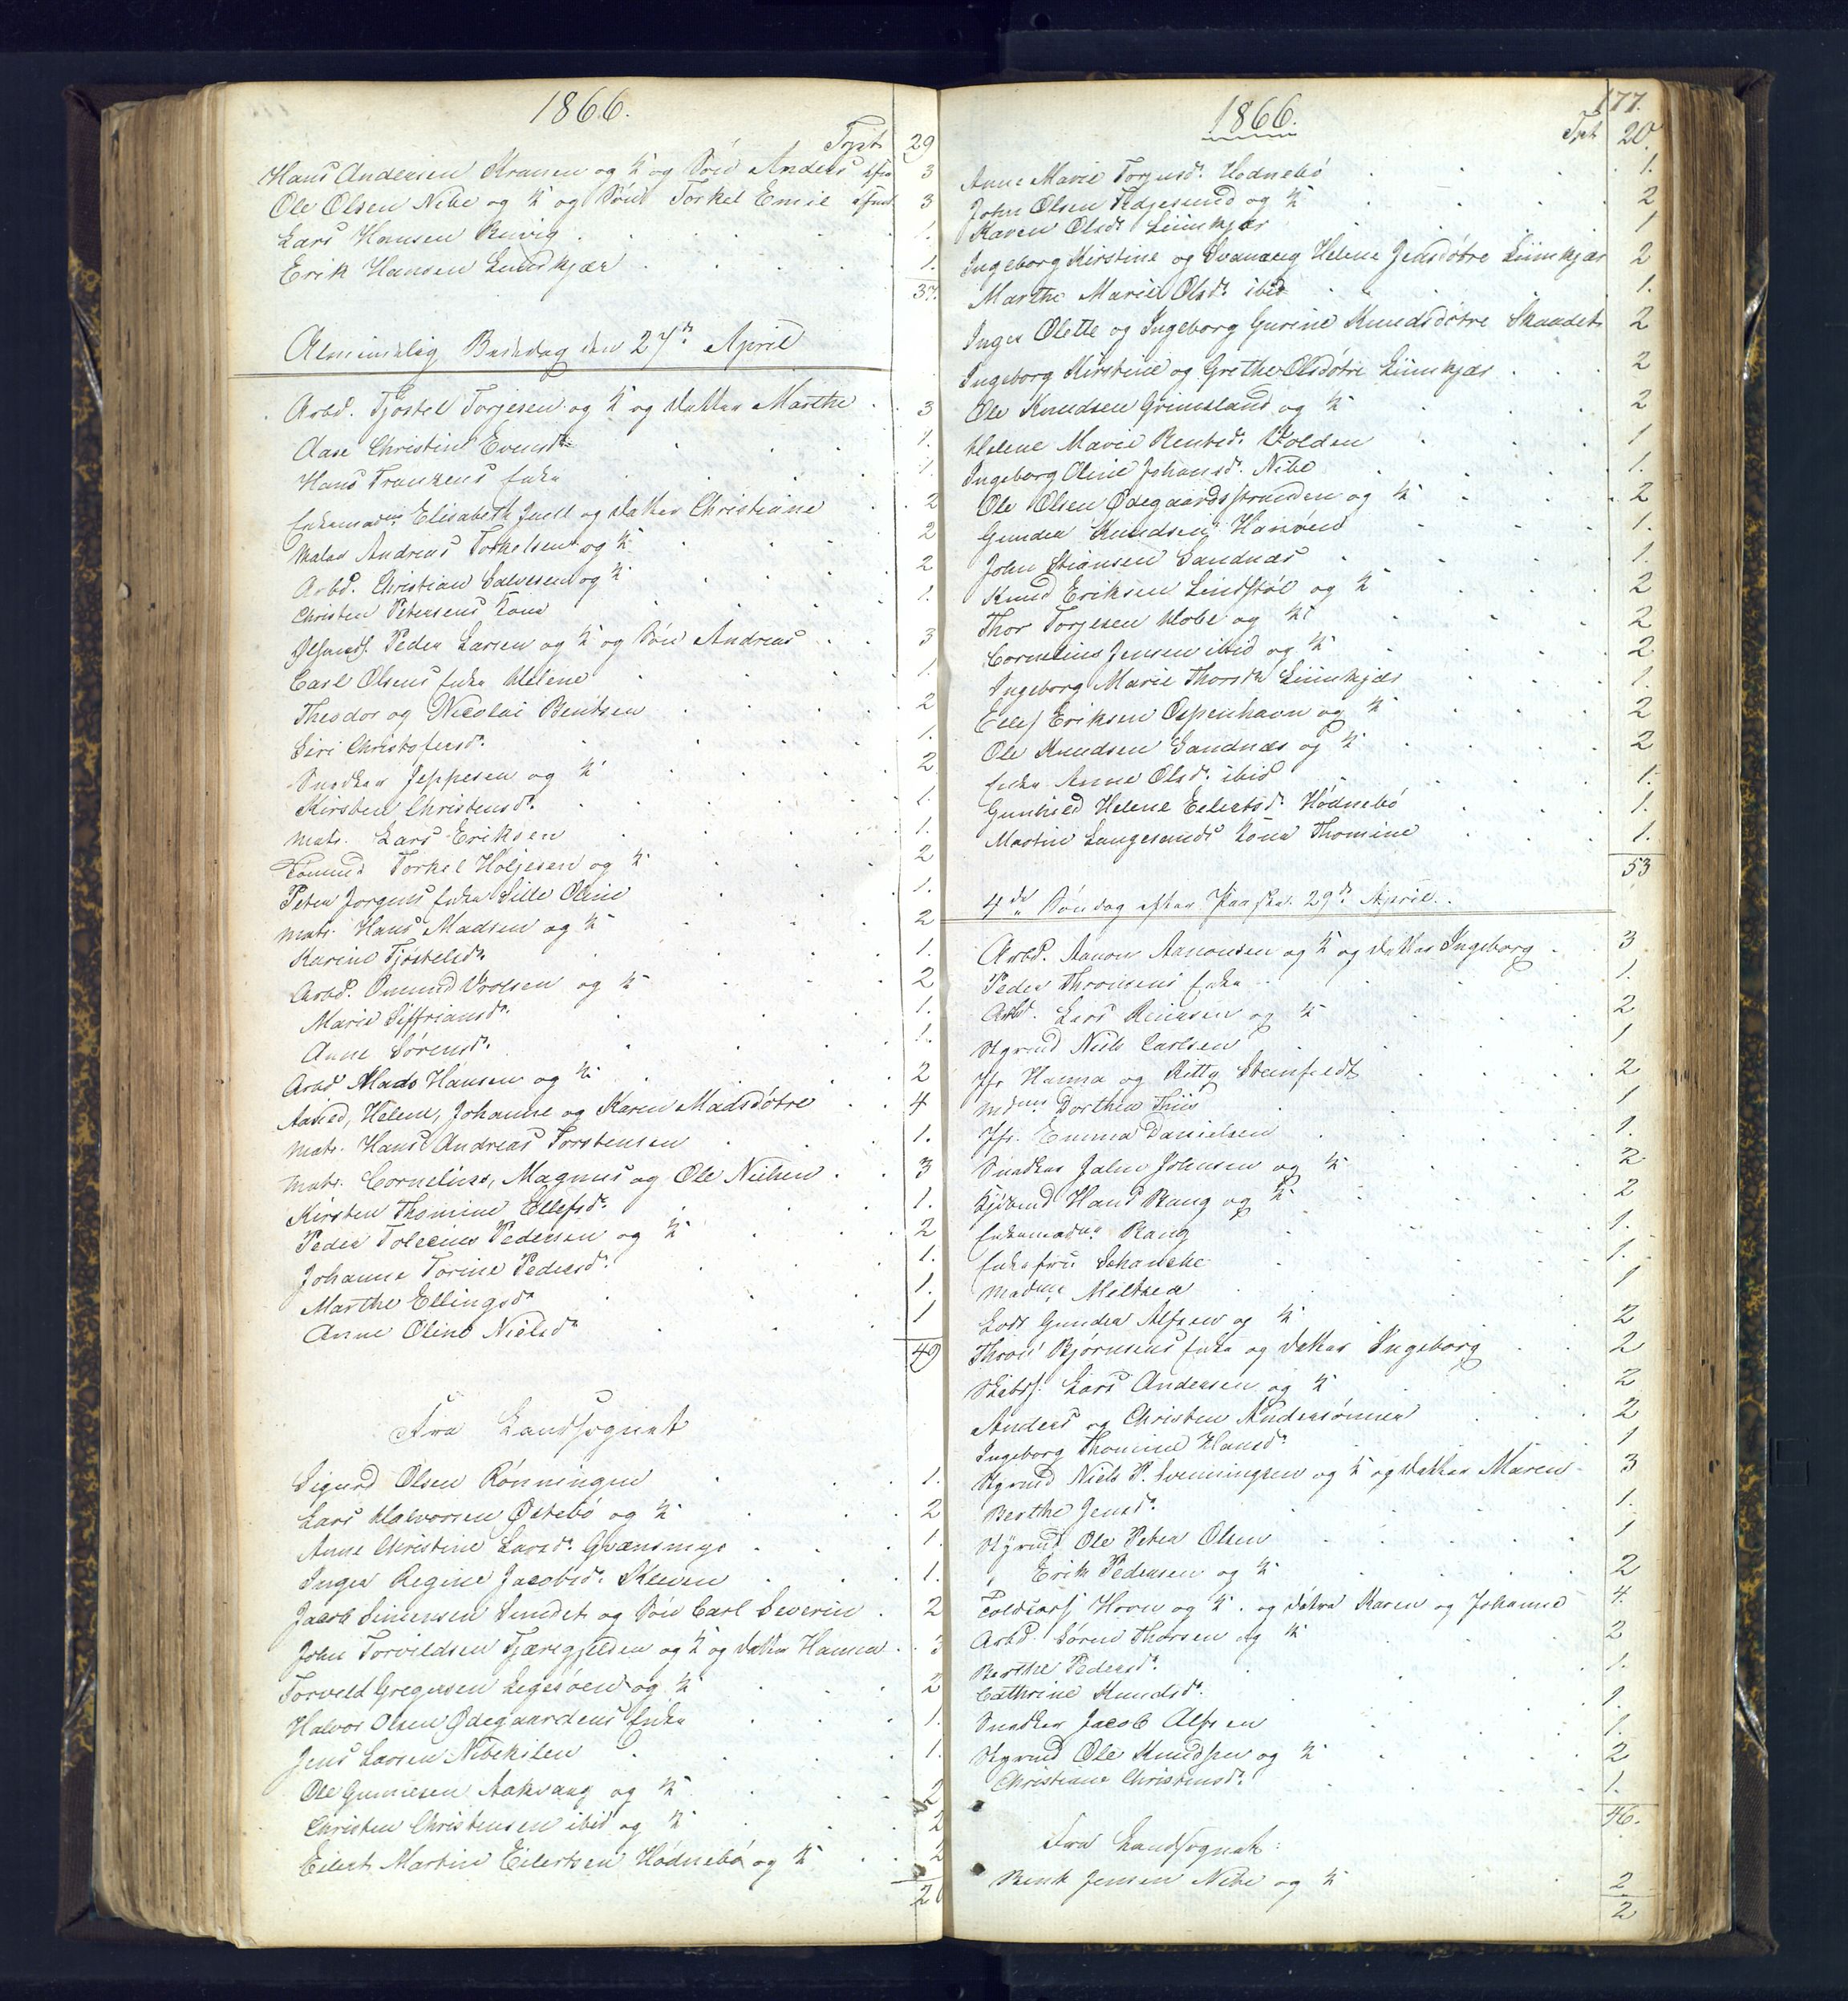 1866.
Tpt. 29
Hans Andersen Kranen og K. og Søn Anders 3
Ole Olsen Nibe og K. og Søn Torkel Emil 3
Lars Hansen Buvig 1.
Erik Hansen Lundkjær 1.
37.
Almindelig Bededag den 27de April
Arbd. Tjøstel Torjesen og K. og datter Marthe 3
Aase Christine Evensdr. 1.
Hans Franzens Enke 1.
Enkemadm. Elisabeth Juell og datter Christiane 2
Maler Andreas Torkelsen og K. 2
Arbd. Christian Salvesen og K. 2
Christen Petersens Kone 1.
Peder Larsen og K. og Søn Andreas 3
Carl Olsens Enke Helene 1.
Theodor og Nicolai Bentsen 2
Siri Christofersdr. 1.
Snedker Jeppesen og K. 2
Kirsten Christensdr. 1.
Matr. Lars Eriksen 1.
Torkel Høljesen og K. 2
Peter Jørgens Enke Sille Oline 1.
Matr. Hans Madsen og K. 2
Karine Tjøstelsdr. 1.
Arbd. Omund Vrolsen og K. 2
Marie Siffriansdr. 1.
Anne Sørensdr. 1.
Arbd Mads Hansen og K. 2
Aasild, Helene, Johanne og Karen Madsdøtre 4
Matr. Hans Andreas Torstensen 1.
Matr. Cornelius, Magnus og Ole Nielsen 3
Kirsten Thomine Ellefsdr. 1.
Peder Tobias Pedersen og K. 2
Johanne Torine Pedersdr. 1.
Marthe Ellingsdr 1.
Anne Oline Nielsdr 1
49
Fra Landsognet
Sigurd Olsen Rønningen 1.
Lars Halvorsen Østebø og K. 2
Anne Christine Larsdr. Qvænsmyr 1.
Inger Regine Jacobsdr. Kleven 1.
Jacob Simensen Sundet og Søn Carl Severin 2
John Torvildsen Tjæregjelden og K. og datter Hanna 3
Torveld Gregersen Legesøen og K. 2
Halvor Olsen Ødegaardens Enke 1.
Jens Larsen Nibekilen 1.
Ole Gunnesen Aakvaag og K. 2
Christen Christensen ibid og K. 2
Eilert Martin Eilertsen Hødnebø og K. 2
20
177.
1866.
Tpt. 20
Anne Marie Torjusdr. Hødnebø 1.
John Olsen Fidjesund og K. 2
Karen Olsdr Liimkjær 1
Ingeborg Kirstine og Svanaug Helene Jensdøtre Liimkjær 2
Marthe Marie Olsdr. ibid 1.
Inger Olette og Ingeborg Gurine Knudsdøtre Skaadet 2
Ingeborg Kirstine og Grethe Olsdøtre Liimkjær 2
Ole Knudsen Grimsland og K. 2
Helene Marie Bentsdr. Volden 1
Ingeborg Oline Johansdr. Nibe 1.
Ole Olsen Ødegaardsstranden og K. 2
Gunder Knudsen Hanøen 1.
John Stiansen Sandnæs 1.
Knud Eriksen Lindstøl og K. 2
Thor Torjesen Hobe og K. 2
Cornelius Jensen ibid og K. 2
Ingeborg Marie Thorsdr Liimkjær 1.
Ellef Eriksen Ospenhavn og K. 2
Ole Knudsen Sandnæs og K. 2
Enke Anne Olsdr. ibid 1.
Gunhild Helene Eilertsdr. Hødnebø 1.
Martin Langesunds Kone Thomine 1.
53
4de Søndag efter Paaske 29de April.
Arbd. Aanon Aanonsen og K. og datter Ingeborg 3
Peder Thronsens Enke 1.
Arbd. Lars Reiersen og K. 2
Styrmd Niels Carlsen 1
Jfr Hanna og Kitty Steinfeldt 2
Mdme. Dorthea Thiis 1
Jfr. Emma Danielsen 1.
Snedker Jahn Johnsen og K. 2
Kjøbmd Hans Bang og K. 2
Enkemadme Bang 1.
Enkefru Schancke 1.
Madme Melthea 1
Lods Gunder Alfsen og K. 2
Thron Bjørnsens Enke og datter Ingeborg 2
Skibsf. Lars Andersen og K. 2
Anders og Christen Andersønner 2
Ingeborg Thomine Hansdr. 1
Styrmd Niels P. Svenningsen og K. og datter Maren 3
Berthe Jensdr. 1.
Styrmd Ole Peter Olsen 1
" Erik Pedersen og K. 2
Horn og K. og døtre Karen og Johanne 4.
Arbd. Søren Thorsen og K. 2
Berthe Pedersdr. 1.
Cathrine Knudsdr. 1.
Snedker Jacob Alfsen 1.
Styrmd Ole Knudsen og K. 2
Christiane Christensdr. 1.
46.
Fra Landsognet:
Bent Jensen Nibe og K. 2
2